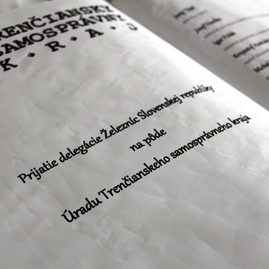 TRENČIANSKY
SAMOSPRÁVNY
K • R • A • J
Prijatie delegácie Železníc Slovenskej republiky
na pôde
Úradu Trenčianskeho samosprávneho kraja